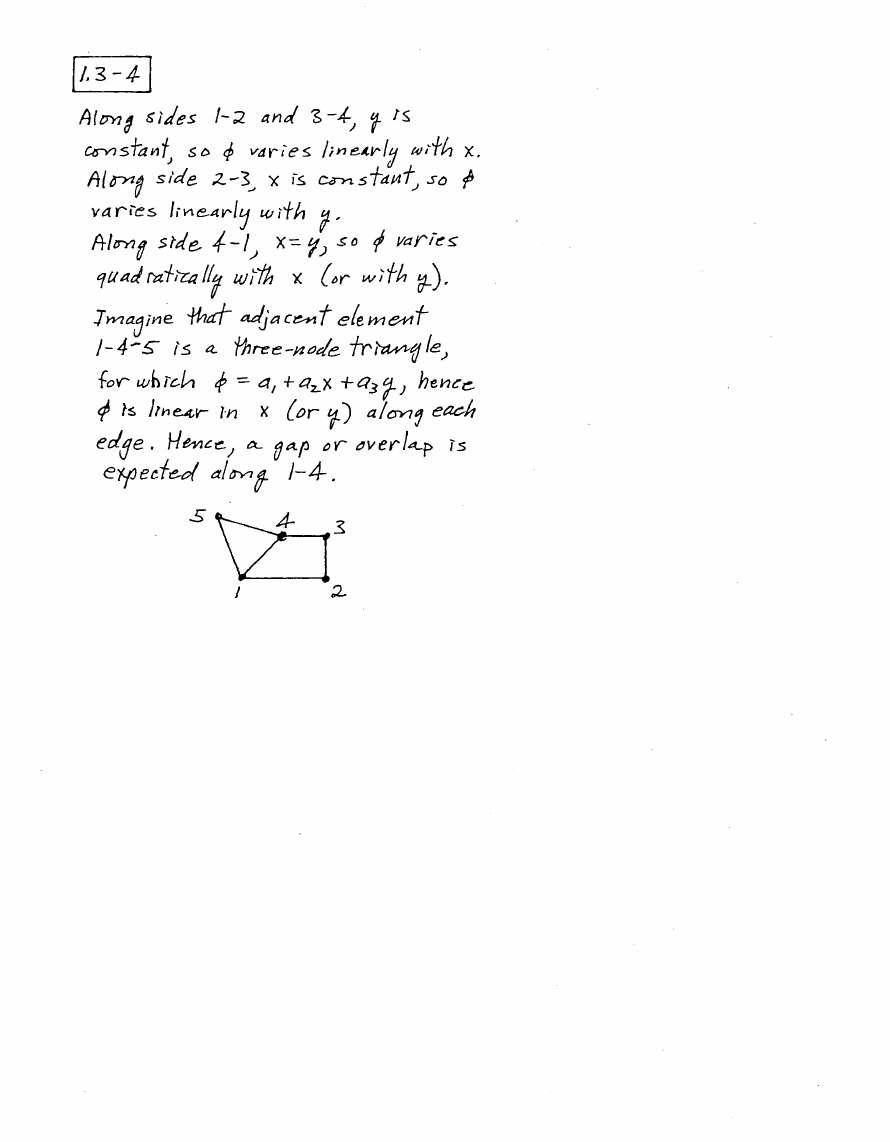 1.3-4
Along sides 1-2 and 3-4, y is
constant, so ϕ varies linearly with x.
Along side 2-3, x is constant, so ϕ
varies linearly with y.
Along side 4-1, x=y, so ϕ varies
quadratically with x (or with y).
Imagine that adjacent element
1-4-5 is a three-node triangle,
for which ϕ = a₁ + a₂x + a₃y, hence
ϕ is linear in x (or y) along each
edge. Hence, a gap or overlap is
expected along 1-4.
5 4 3
1 2